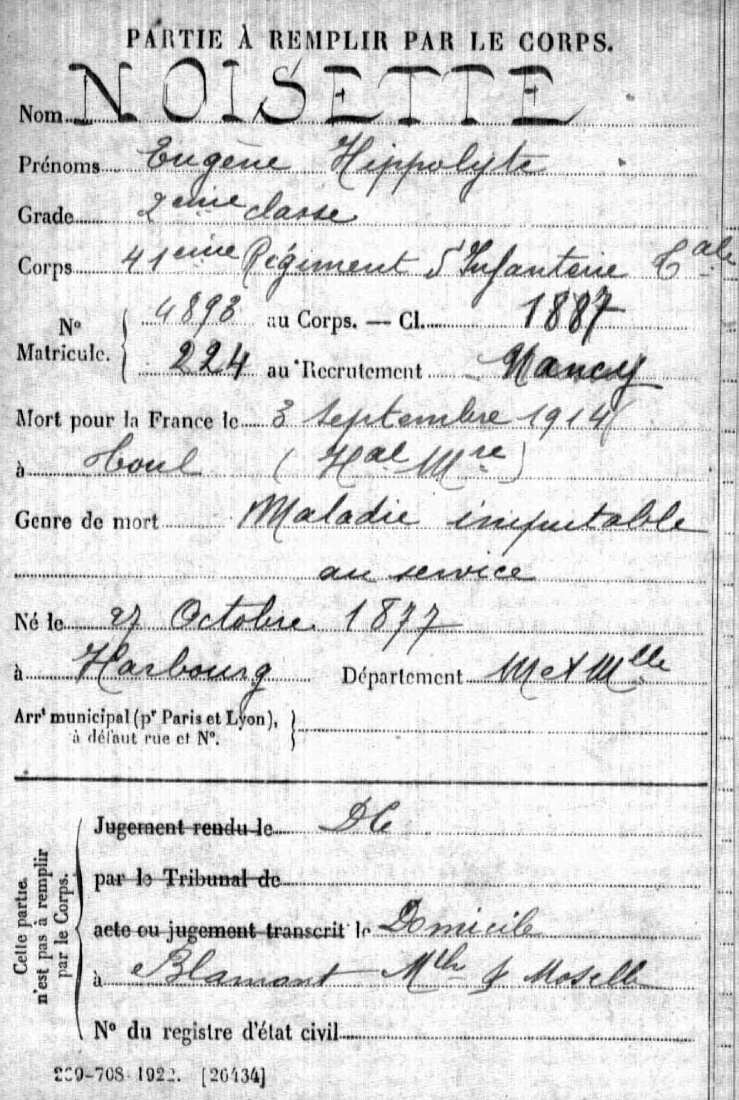 PARTIE À REMPLIR PAR LE CORPS.
Nom NOISETTE
Prénoms Eugène Hippolyte
Grade 2eme classe
Corps 41eme Régiment d'Infanterie Cale
No Matricule. 4893 au Corps. — Cl. 1887
224 au Recrutement Nancy
Mort pour la France le 3 septembre 1914
à Toul (Hal Mre)
Genre de mort Maladie imputable
au service
Né le 27 Octobre 1877
à Harbourg Département M et Mlle
Arrt municipal (pr Paris et Lyon),
à défaut rue et No.
Cette partie n'est pas à remplir par le Corps.
Jugement rendu le
par le Tribunal de
acte ou jugement transcrit le Domicile
à Blamont Mthe & Moselle
No du registre d'état civil
-708-1922. [26434]